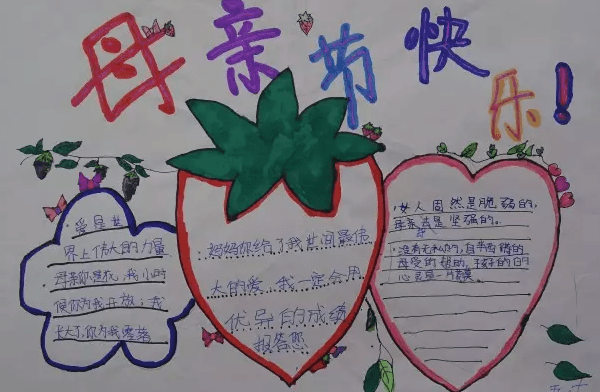 母亲节快乐!
·爱是世
界上伟大的力量
·母亲你是伙,我小时
候你为我开放;我
长大了,你为我零落
妈妈你给了我世间最伟
大的爱,我一定会用
优异的成绩
报答您
·女人固然是脆弱的,
母亲是坚强的。
·没有无私的,自
母爱的帮助,孩子的
心灵是一片